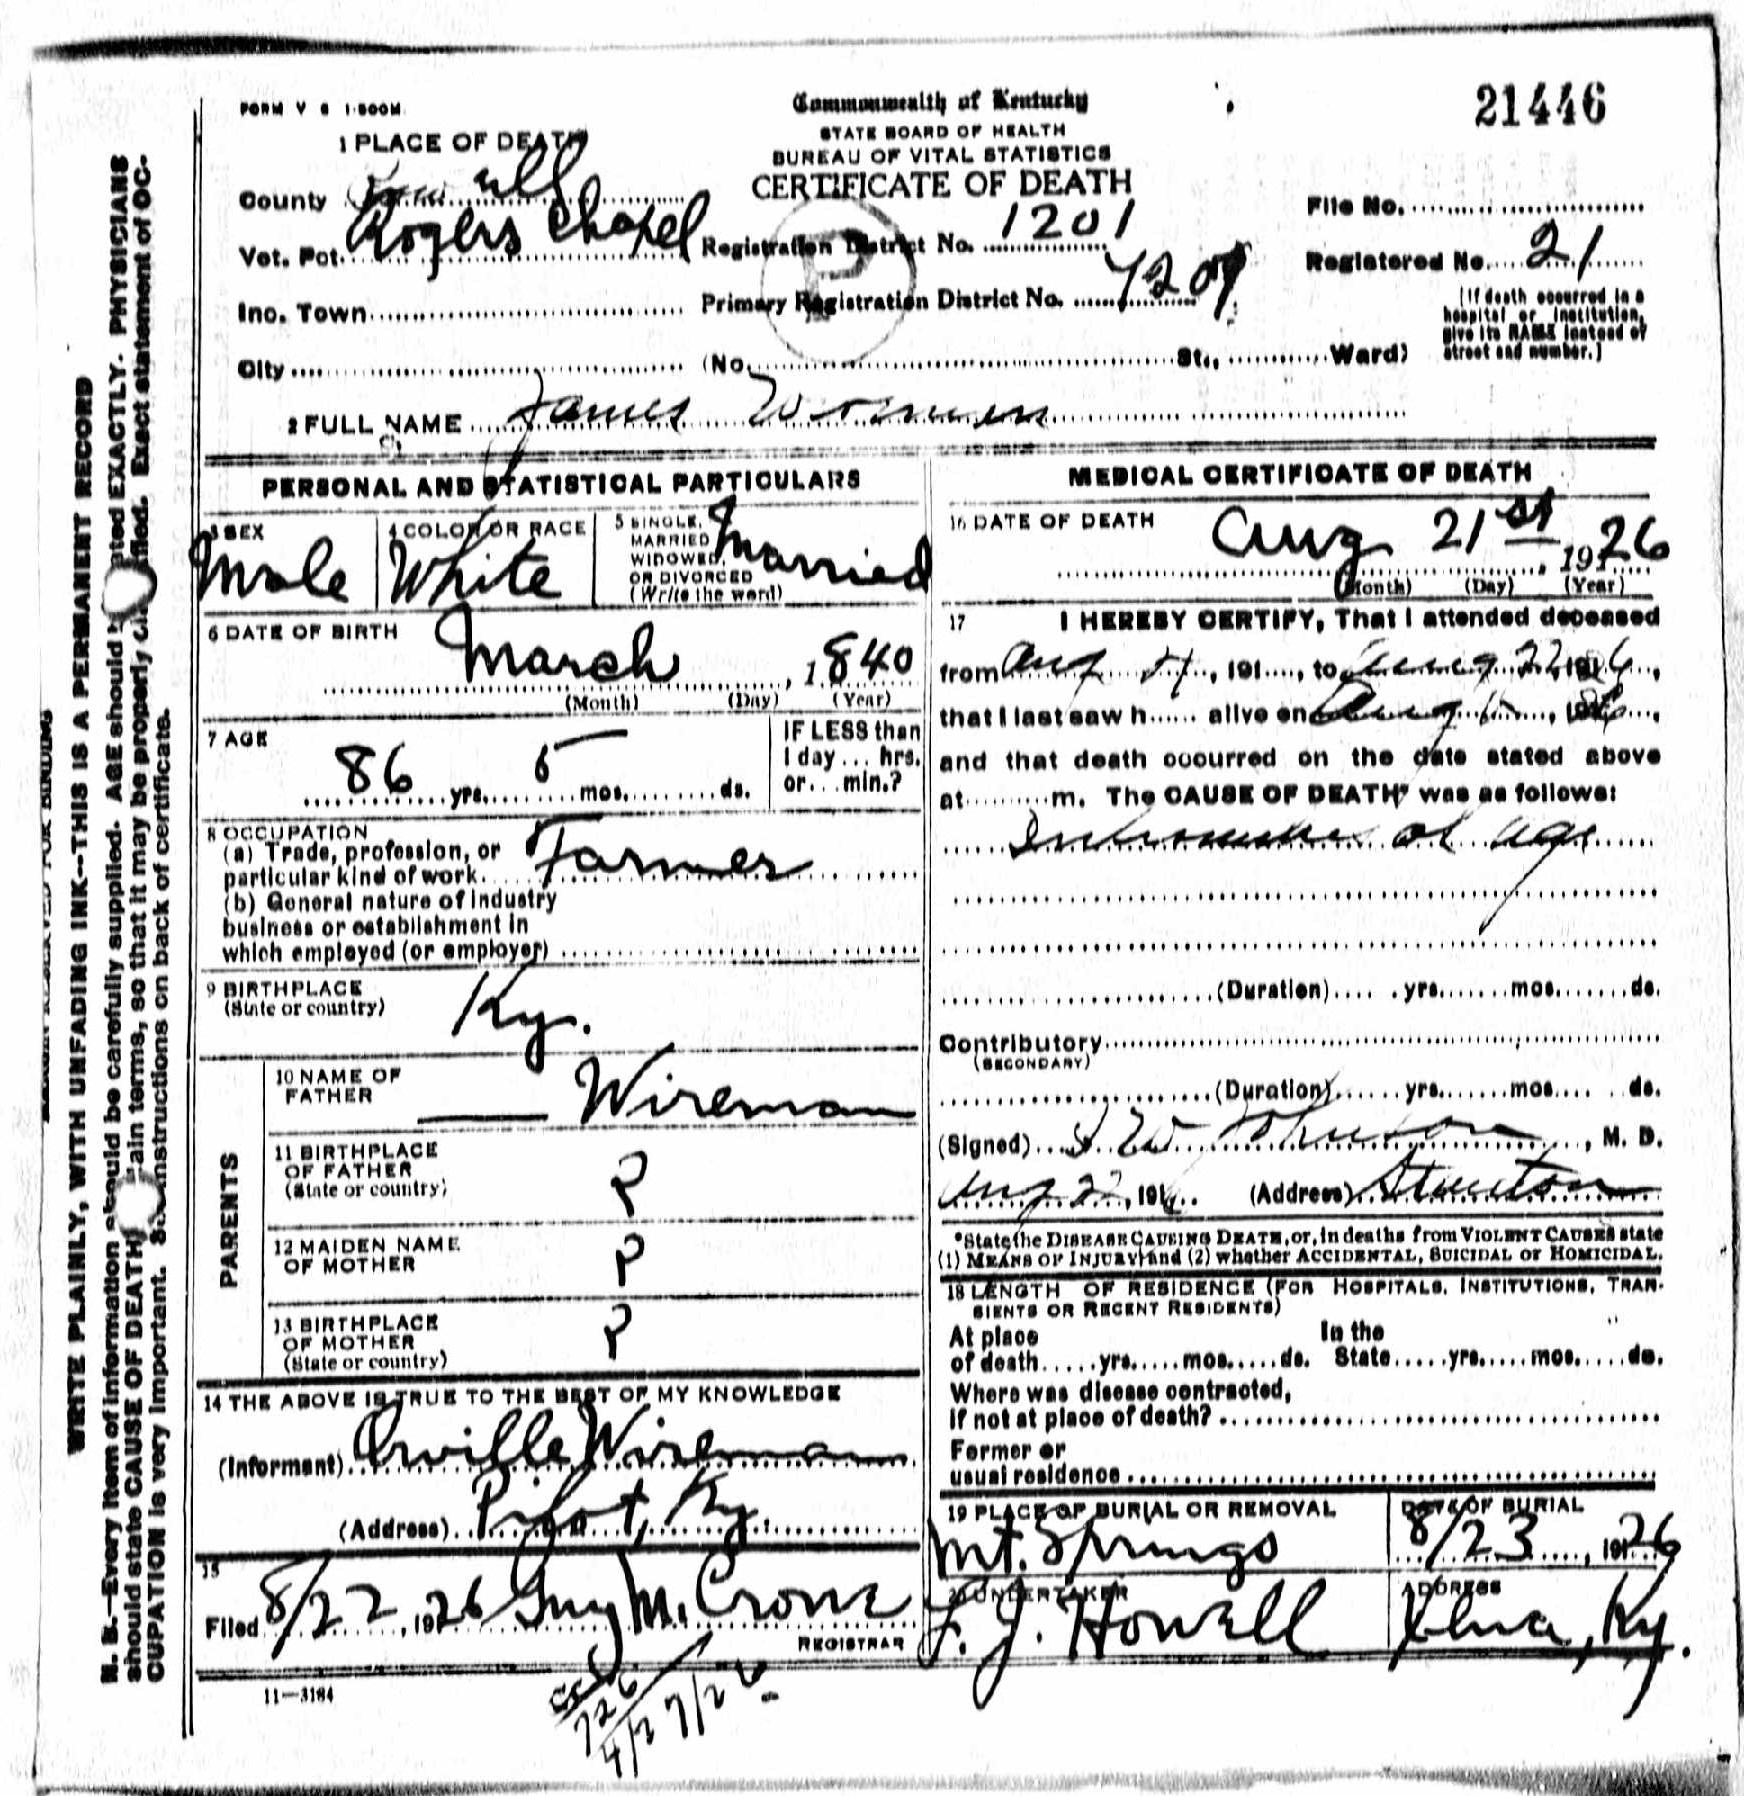 FORM V S 1-500M
Commonwealth of Kentucky
21446
STATE BOARD OF HEALTH
BUREAU OF VITAL STATISTICS
CERTIFICATE OF DEATH
1 PLACE OF DEATH
County Powell
Vot. Pct. Rogers Chapel
Inc. Town
City
Registration District No. 1201
Primary Registration District No.
(No. St., Ward)
File No.
Registered No. 21
(If death occurred in a
hospital or institution,
give its NAME instead of
street and number.)
2 FULL NAME James
PERSONAL AND STATISTICAL PARTICULARS
3 SEX
Male
4 COLOR OR RACE
White
5 SINGLE,
MARRIED
WIDOWED,
OR DIVORCED
(Write the word)
Married
6 DATE OF BIRTH
March , 1840
(Month) (Day) (Year)
7 AGE
86 yrs. 5 mos. ds.
IF LESS than
1 day ... hrs.
or ... min.?
8 OCCUPATION
(a) Trade, profession, or
particular kind of work. Farmer
(b) General nature of industry
business or establishment in
which employed (or employer)
9 BIRTHPLACE
(State or country)
Ky.
PARENTS
10 NAME OF
FATHER
Wireman
11 BIRTHPLACE
OF FATHER
(State or country)
?
12 MAIDEN NAME
OF MOTHER
?
13 BIRTHPLACE
OF MOTHER
(State or country)
?
14 THE ABOVE IS TRUE TO THE BEST OF MY KNOWLEDGE
(Informant) Orville Wireman
(Address) Pilot, Ky.
15
Filed 8/22, 1926 Guy M. Crowe
REGISTRAR
11—3184
MEDICAL CERTIFICATE OF DEATH
16 DATE OF DEATH
Aug 21st 1926
(Month) (Day) (Year)
17 I HEREBY CERTIFY, That I attended deceased
from Aug , 191 , to Aug 22
that I last saw h alive on Aug
and that death occurred on the date stated above
at m. The CAUSE OF DEATH* was as follows:
of age
(Duration) yrs. mos. ds.
Contributory
(SECONDARY)
(Duration) yrs. mos. ds.
(Signed) Johnson , M. D.
Aug 22, 191 (Address) Stanton
*State the DISEASE CAUSING DEATH, or, in deaths from VIOLENT CAUSES state
(1) MEANS OF INJURY; and (2) whether ACCIDENTAL, SUICIDAL or HOMICIDAL.
18 LENGTH OF RESIDENCE (FOR HOSPITALS, INSTITUTIONS, TRAN-
SIENTS OR RECENT RESIDENTS)
At place In the
of death yrs. mos. ds. State yrs. mos. ds.
Where was disease contracted,
if not at place of death?
Former or
usual residence
19 PLACE OF BURIAL OR REMOVAL
Mt. Springs
DATE OF BURIAL
8/23, 1926
20 UNDERTAKER
F. J. Howell
ADDRESS
Ky.
WRITE PLAINLY, WITH UNFADING INK--THIS IS A PERMANENT RECORD
N. B.—Every item of information should be carefully supplied. AGE should EXACTLY. PHYSICIANS
should state CAUSE OF DEATH terms, so that it may be properly Exact statement of OC-
CUPATION is very important. on back of certificate.